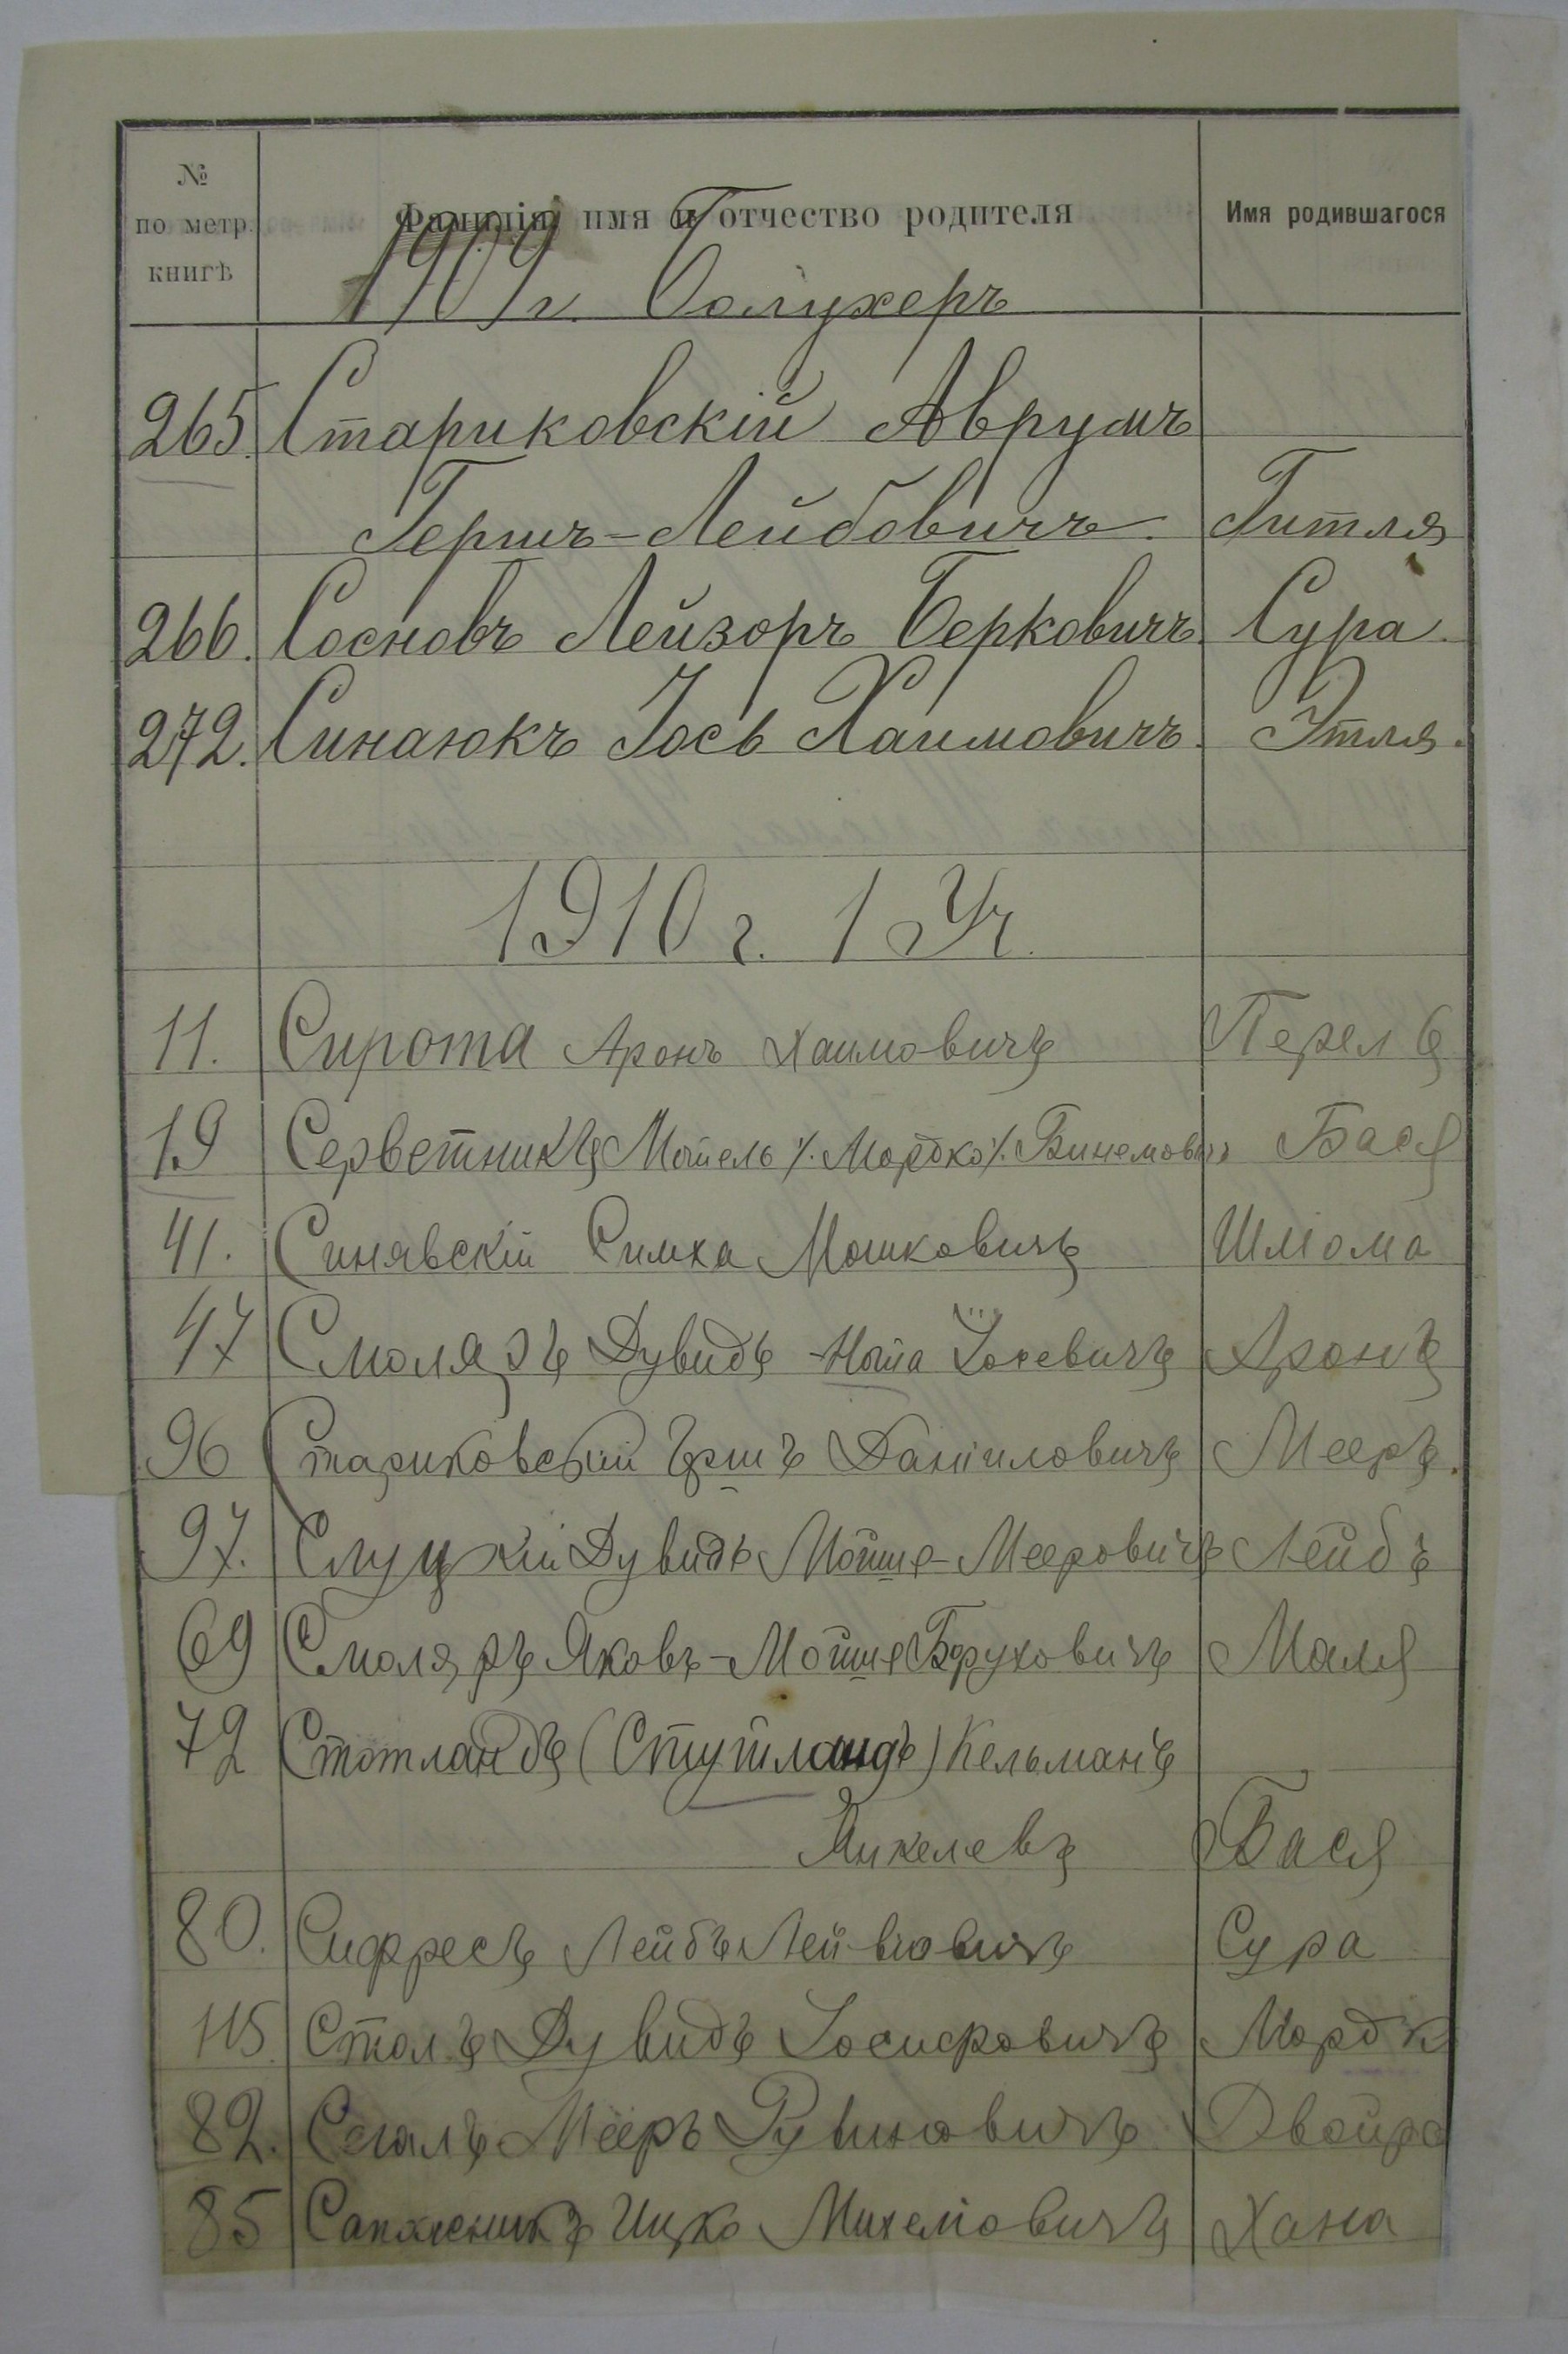 №
по метр.
книгѣ
Фамилія, имя и отчество родителя
Имя родившагося
1909 г.
265. Стариковскій Аврумъ
Гершъ-Лейбовичъ. Гитля
266. Сосновъ Лейзоръ Берковичъ. Сура.
272. Синаюкъ Іось Хаимовичъ. Этля.
1910 г. 1 Уч.
11. Сирота Аронъ Хаимовичъ Перель
19 Серветникъ Мошель /. Мордко /. Бинемовичъ Бася
41. Синявскій Симха Мошковичъ Шлiома
47 Смоляръ Дувидъ Іосевичъ Аронъ
96 Стариковскій Гершъ Даніиловичъ Мееръ.
97. Слуцкій Дувидъ Мойше-Мееровичъ Лейбъ
69 Смоляръ Яковъ-Мойше Боруховичъ Маля
72 Стотландъ (Стутландъ) Кельманъ
Янкелевъ Бася
80. Сифресъ Лейбъ Сура
115. Столъ Дувидъ Іосифовичъ Мордк
82. Сегалъ Мееръ Рувиновичъ Двойра
85 Сапожникъ Ицко Михелiовичъ Хана